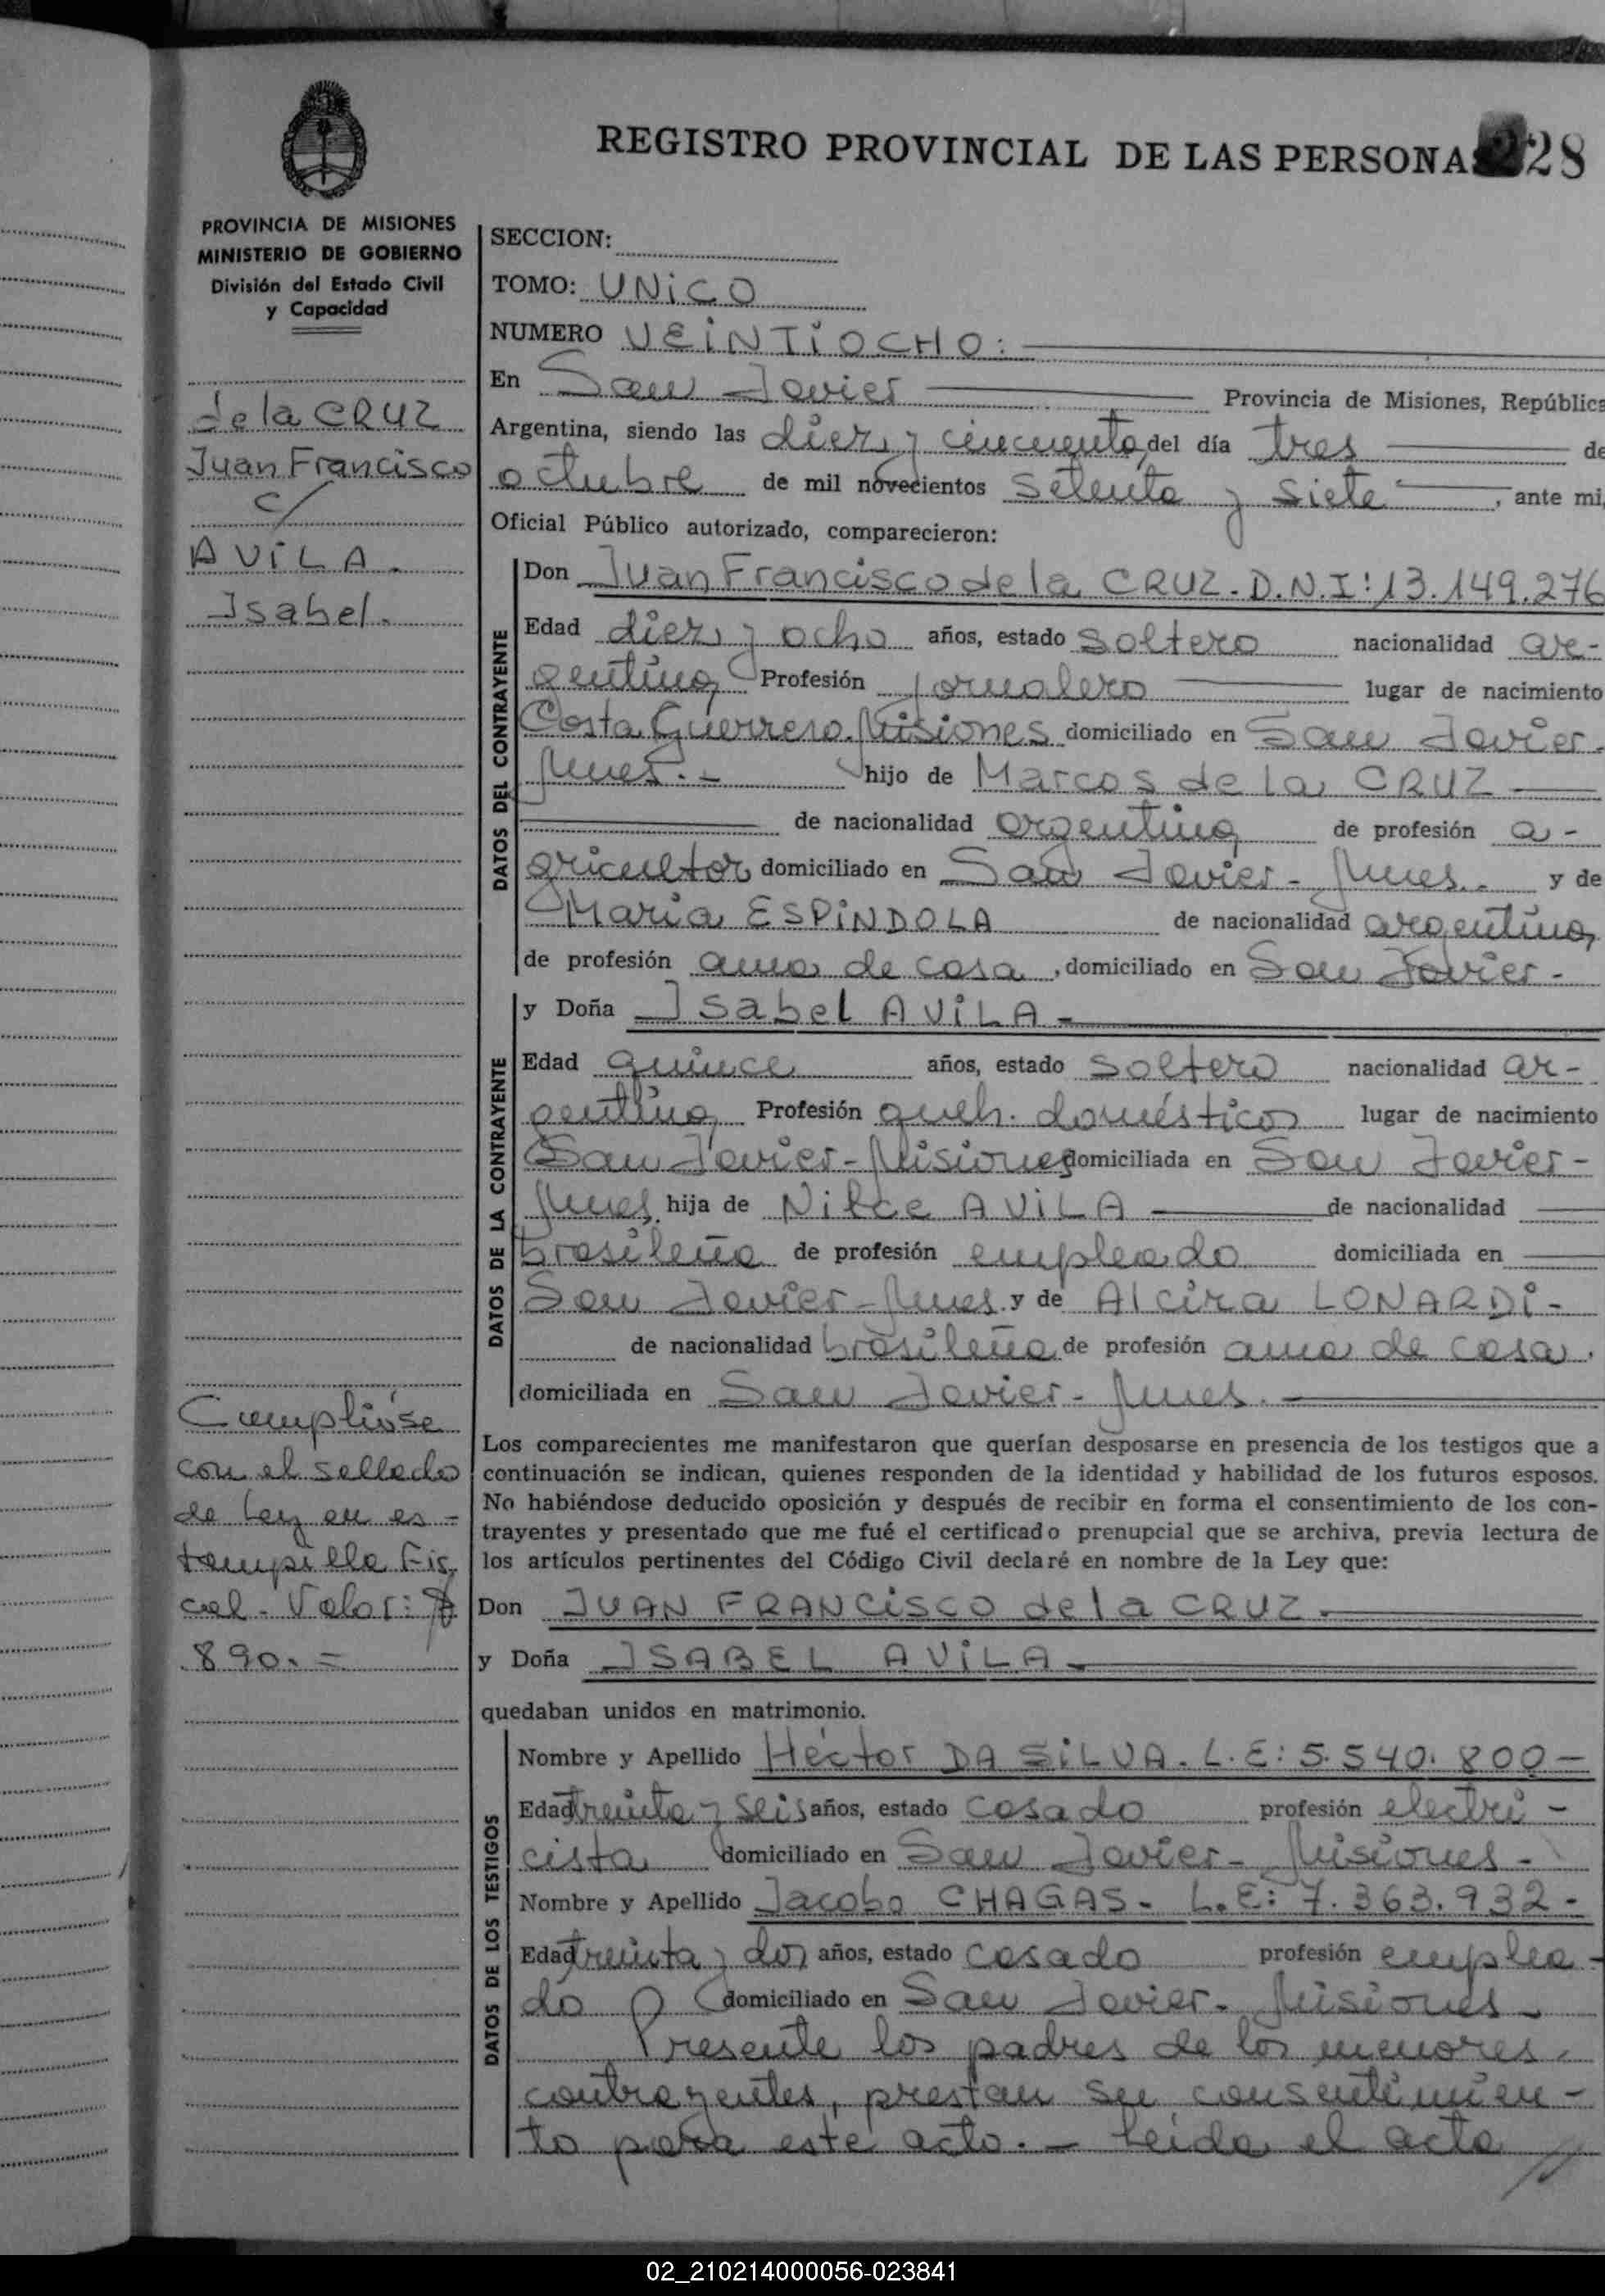 REGISTRO PROVINCIAL DE LAS PERSONAS 28
PROVINCIA DE MISIONES
MINISTERIO DE GOBIERNO
División del Estado Civil
y Capacidad
de la CRUZ
Juan Francisco
c/
AVILA.
Isabel.
Cumplióse
con el sellado
de Ley en es-
tampilla Fis,
cal - Valor: $
890.=
SECCION:
TOMO: UNICO
NUMERO VEINTIOCHO:
En San Javier Provincia de Misiones, República
Argentina, siendo las diez y cincuenta, del día tres de
octubre de mil novecientos setenta y siete, ante mi,
Oficial Público autorizado, comparecieron:
DATOS DEL CONTRAYENTE
Don Juan Francisco de la CRUZ. D.N.I: 13.149.276
Edad diez y ocho años, estado soltero nacionalidad ar-
gentina, Profesión jornalero lugar de nacimiento
Costa Guerrero. Misiones domiciliado en San Javier.
Mnes.- hijo de Marcos de la CRUZ
de nacionalidad argentina de profesión a-
gricultor domiciliado en San Javier - Mnes.- y de
Maria ESPINDOLA de nacionalidad argentina,
de profesión ama de casa, domiciliado en San Javier-
DATOS DE LA CONTRAYENTE
y Doña Isabel AVILA-
Edad quince años, estado soltera nacionalidad ar-
gentina, Profesión queh. domésticos lugar de nacimiento
San Javier - Misiones domiciliada en San Javier-
Mnes, hija de Nilce AVILA de nacionalidad
brasileña de profesión empleado domiciliada en
San Javier - Mnes. y de Alcira LONARDI-
de nacionalidad brasileña de profesión ama de casa.
domiciliada en San Javier - Mnes.
Los comparecientes me manifestaron que querían desposarse en presencia de los testigos que a
continuación se indican, quienes responden de la identidad y habilidad de los futuros esposos.
No habiéndose deducido oposición y después de recibir en forma el consentimiento de los con-
trayentes y presentado que me fué el certificado prenupcial que se archiva, previa lectura de
los artículos pertinentes del Código Civil declaré en nombre de la Ley que:
Don JUAN FRANCISCO de la CRUZ.
y Doña ISABEL AVILA-
quedaban unidos en matrimonio.
DATOS DE LOS TESTIGOS
Nombre y Apellido Héctor DA SILVA. L.E: 5.540.800-
Edad treinta y seis años, estado casado profesión electri-
cista domiciliado en San Javier - Misiones-
Nombre y Apellido Jacobo CHAGAS- L.E: 7.363.932-
Edad treinta y dos años, estado casado profesión emplea-
do domiciliado en San Javier. Misiones-
Presente los padres de los menores
contrayentes, prestan su consentimien-
to para este acto.- Leída el acta
//
02_210214000056-023841